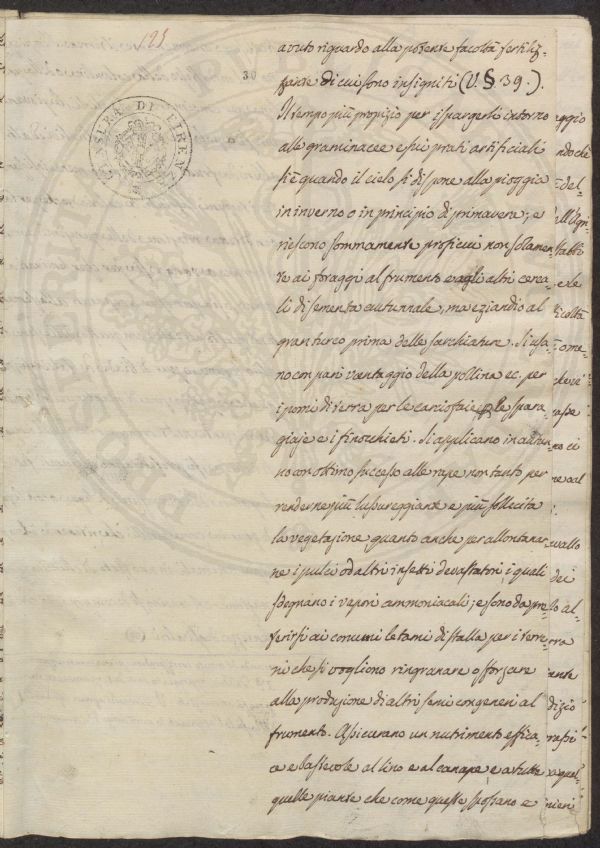 125
30
CENSURA DI FIRENZE
avuto riguardo alla potente facoltà fertiliz-
zante di cui sono insigniti (V. § 39.).
Il tempo più propizio per ispargerli intorno
alle graminacee e sui prati artificiali
si è quando il cielo si dispone alla pioggia
in inverno o in principio di primavera; e
riescono sommamente proficui non solamen-
te ai foraggi al frumento e agli altri cerea-
li di sementa autunnale, ma eziandio al
gran turco prima delle sarchiature. Si usa-
no con pari vantaggio della pollina ec. per
i pomi di terra per le carciofaie le spara-
giaje e i finocchieti. Si applicano in autun-
no con ottimo successo alle rape non tanto per
renderne più lussureggiante e più sollecita
la vegetazione quanto anche per allontanar-
ne i pulci od altri insetti devastatori, i quali
sdegnano i vapori ammoniacali; e sono da pre-
ferirsi ai comuni letami di stalla per i terre-
ni che si vogliono ringranare o forzare
alla produzione di altri semi congeneri al
frumento. Assicurano un nutrimento effica-
ce e bastevole al lino e al canape e a tutte
quelle piante che come queste spossano e